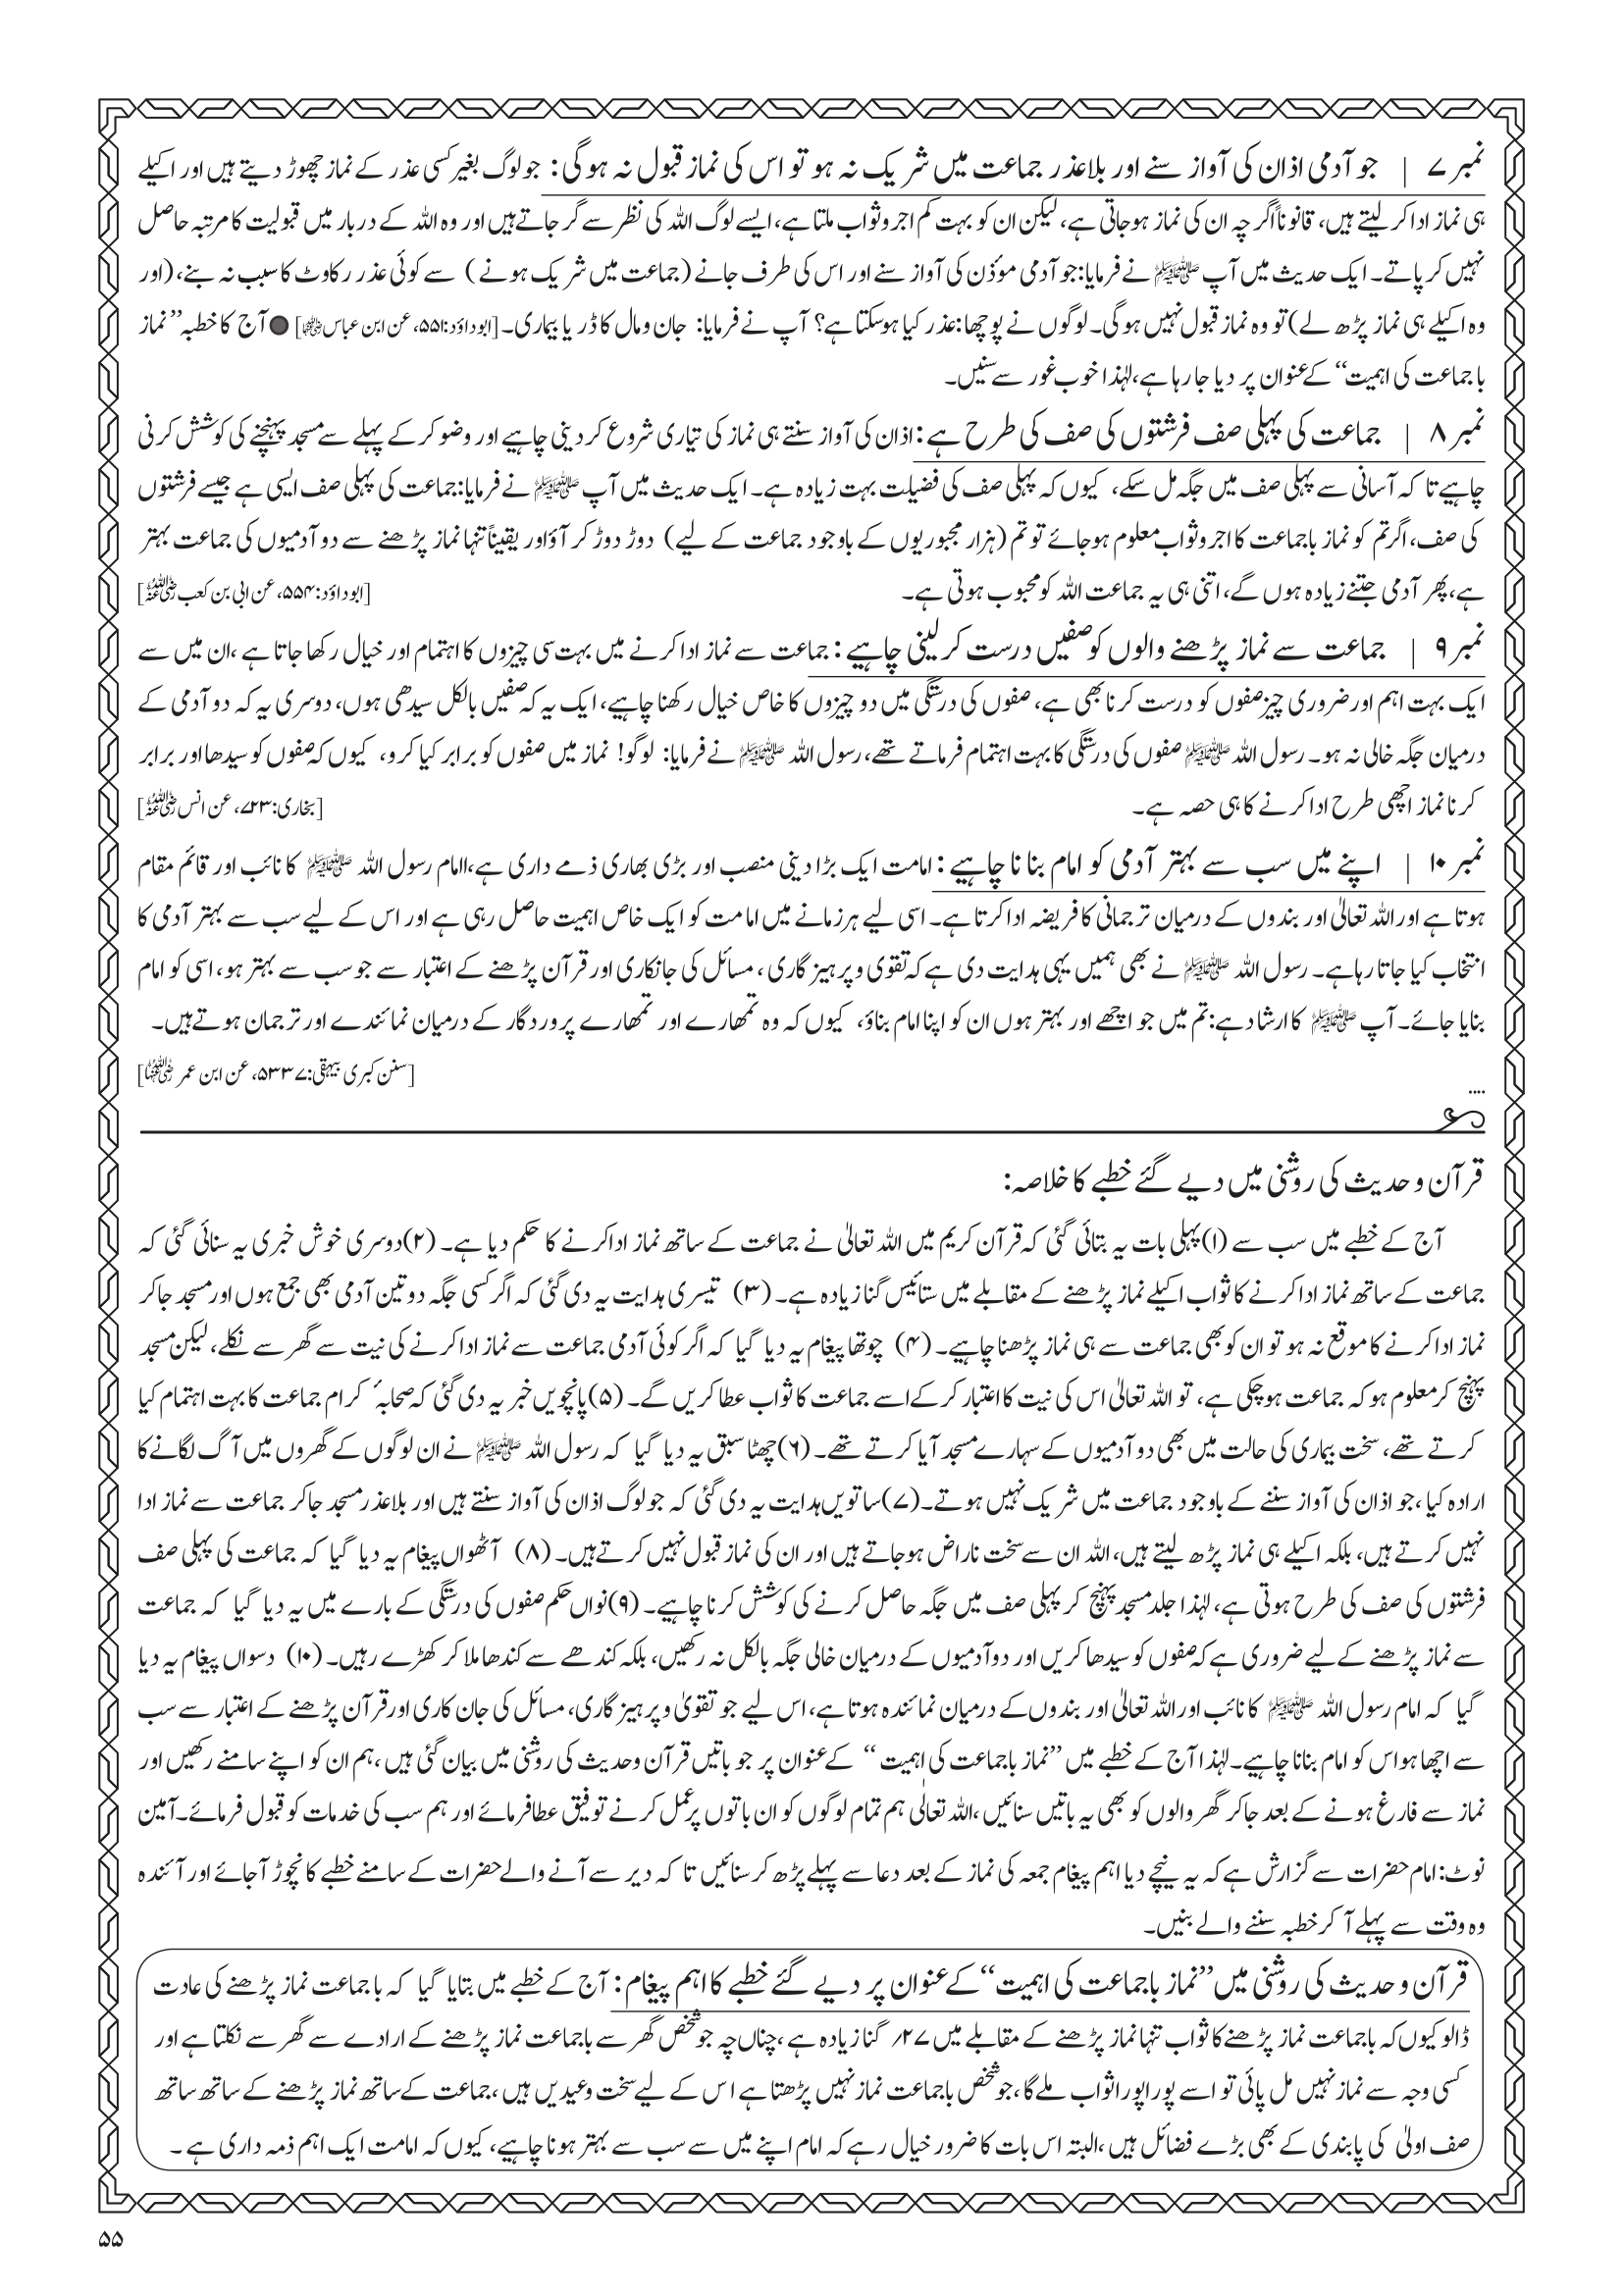 نمبر ۷ | جو آدمی اذان کی آواز سنے اور بلاعذر جماعت میں شریک نہ ہو تو اس کی نماز قبول نہ ہوگی: جو لوگ بغیر کسی عذر کے نماز چھوڑ دیتے ہیں اور اکیلے
ہی نماز ادا کر لیتے ہیں، قانوناً اگرچہ ان کی نماز ہوجاتی ہے، لیکن ان کو بہت کم اجروثواب ملتا ہے، ایسے لوگ اللہ کی نظر سے گر جاتے ہیں اور وہ اللہ کے دربار میں قبولیت کا مرتبہ حاصل
نہیں کر پاتے۔ ایک حدیث میں آپ ﷺ نے فرمایا: جو آدمی موٴذن کی آواز سنے اور اس کی طرف جانے (جماعت میں شریک ہونے) سے کوئی عذر رکاوٹ کا سبب نہ بنے، (اور
وہ اکیلے ہی نماز پڑھ لے) تو وہ نماز قبول نہیں ہوگی۔ لوگوں نے پوچھا: عذر کیا ہوسکتا ہے؟ آپ نے فرمایا: جان ومال کا ڈر یا بیماری۔ [ابوداؤد:۵۵۱، عن ابن عباس رضی اللہ عنہما] ● آج کا خطبہ ”نماز
باجماعت کی اہمیت“ کے عنوان پر دیا جارہا ہے، لہٰذا خوب غور سے سنیں۔
نمبر ۸ | جماعت کی پہلی صف فرشتوں کی صف کی طرح ہے: اذان کی آواز سنتے ہی نماز کی تیاری شروع کردینی چاہیے اور وضو کرکے پہلے سے مسجد پہنچنے کی کوشش کرنی
چاہیے تا کہ آسانی سے پہلی صف میں جگہ مل سکے، کیوں کہ پہلی صف کی فضیلت بہت زیادہ ہے۔ ایک حدیث میں آپ ﷺ نے فرمایا: جماعت کی پہلی صف ایسی ہے جیسے فرشتوں
کی صف، اگر تم کو نماز باجماعت کا اجروثواب معلوم ہوجائے تو تم (ہزار مجبوریوں کے باوجود جماعت کے لیے) دوڑ دوڑ کر آؤ اور یقیناً تنہا نماز پڑھنے سے دو آدمیوں کی جماعت بہتر
ہے، پھر آدمی جتنے زیادہ ہوں گے، اتنی ہی یہ جماعت اللہ کو محبوب ہوتی ہے۔ [ابوداؤد:۵۵۴، عن ابی بن کعب رضی اللہ عنہ]
نمبر ۹ | جماعت سے نماز پڑھنے والوں کو صفیں درست کر لینی چاہیے: جماعت سے نماز ادا کرنے میں بہت سی چیزوں کا اہتمام اور خیال رکھا جاتا ہے، ان میں سے
ایک بہت اہم اور ضروری چیز صفوں کو درست کرنا بھی ہے، صفوں کی درستگی میں دو چیزوں کا خاص خیال رکھنا چاہیے، ایک یہ کہ صفیں بالکل سیدھی ہوں، دوسری یہ کہ دو آدمی کے
درمیان جگہ خالی نہ ہو۔ رسول اللہ ﷺ صفوں کی درستگی کا بہت اہتمام فرماتے تھے، رسول اللہ ﷺ نے فرمایا: لوگو! نماز میں صفوں کو برابر کیا کرو، کیوں کہ صفوں کو سیدھا اور برابر
کرنا نماز اچھی طرح ادا کرنے کا ہی حصہ ہے۔ [بخاری:۷۲۳، عن انس رضی اللہ عنہ]
نمبر ۱۰ | اپنے میں سب سے بہتر آدمی کو امام بنانا چاہیے: امامت ایک بڑا دینی منصب اور بڑی بھاری ذمے داری ہے، امام رسول اللہ ﷺ کا نائب اور قائم مقام
ہوتا ہے اور اللہ تعالیٰ اور بندوں کے درمیان ترجمانی کا فریضہ ادا کرتا ہے۔ اسی لیے ہر زمانے میں امامت کو ایک خاص اہمیت حاصل رہی ہے اور اس کے لیے سب سے بہتر آدمی کا
انتخاب کیا جاتا رہا ہے۔ رسول اللہ ﷺ نے بھی ہمیں یہی ہدایت دی ہے کہ تقوی وپرہیز گاری، مسائل کی جانکاری اور قرآن پڑھنے کے اعتبار سے جو سب سے بہتر ہو، اسی کو امام
بنایا جائے۔ آپ ﷺ کا ارشاد ہے: تم میں جو اچھے اور بہتر ہوں ان کو اپنا امام بناؤ، کیوں کہ وہ تمھارے اور تمھارے پروردگار کے درمیان نمائندے اور ترجمان ہوتے ہیں۔
[سنن کبری بیہقی:۵۳۳۷، عن ابن عمر رضی اللہ عنہما]
....
قرآن و حدیث کی روشنی میں دیے گئے خطبے کا خلاصہ:
آج کے خطبے میں سب سے (۱) پہلی بات یہ بتائی گئی کہ قرآن کریم میں اللہ تعالیٰ نے جماعت کے ساتھ نماز ادا کرنے کا حکم دیا ہے۔ (۲) دوسری خوش خبری یہ سنائی گئی کہ
جماعت کے ساتھ نماز ادا کرنے کا ثواب اکیلے نماز پڑھنے کے مقابلے میں ستائیس گنا زیادہ ہے۔ (۳) تیسری ہدایت یہ دی گئی کہ اگر کسی جگہ دو تین آدمی بھی جمع ہوں اور مسجد جاکر
نماز ادا کرنے کا موقع نہ ہو تو ان کو بھی جماعت سے ہی نماز پڑھنا چاہیے۔ (۴) چوتھا پیغام یہ دیا گیا کہ اگر کوئی آدمی جماعت سے نماز ادا کرنے کی نیت سے گھر سے نکلے، لیکن مسجد
پہنچ کر معلوم ہو کہ جماعت ہوچکی ہے، تو اللہ تعالیٰ اس کی نیت کا اعتبار کرکے اسے جماعت کا ثواب عطا کریں گے۔ (۵) پانچویں خبر یہ دی گئی کہ صحابہٴ کرام جماعت کا بہت اہتمام کیا
کرتے تھے، سخت بیماری کی حالت میں بھی دو آدمیوں کے سہارے مسجد آیا کرتے تھے۔ (۶) چھٹا سبق یہ دیا گیا کہ رسول اللہ ﷺ نے ان لوگوں کے گھروں میں آگ لگانے کا
ارادہ کیا، جو اذان کی آواز سننے کے باوجود جماعت میں شریک نہیں ہوتے۔ (۷) ساتویں ہدایت یہ دی گئی کہ جو لوگ اذان کی آواز سنتے ہیں اور بلاعذر مسجد جاکر جماعت سے نماز ادا
نہیں کرتے ہیں، بلکہ اکیلے ہی نماز پڑھ لیتے ہیں، اللہ ان سے سخت ناراض ہوجاتے ہیں اور ان کی نماز قبول نہیں کرتے ہیں۔ (۸) آٹھواں پیغام یہ دیا گیا کہ جماعت کی پہلی صف
فرشتوں کی صف کی طرح ہوتی ہے، لہٰذا جلد مسجد پہنچ کر پہلی صف میں جگہ حاصل کرنے کی کوشش کرنا چاہیے۔ (۹) نواں حکم صفوں کی درستگی کے بارے میں یہ دیا گیا کہ جماعت
سے نماز پڑھنے کے لیے ضروری ہے کہ صفوں کو سیدھا کریں اور دو آدمیوں کے درمیان خالی جگہ بالکل نہ رکھیں، بلکہ کندھے سے کندھا ملا کر کھڑے رہیں۔ (۱۰) دسواں پیغام یہ دیا
گیا کہ امام رسول اللہ ﷺ کا نائب اور اللہ تعالیٰ اور بندوں کے درمیان نمائندہ ہوتا ہے، اس لیے جو تقویٰ وپرہیز گاری، مسائل کی جان کاری اور قرآن پڑھنے کے اعتبار سے سب
سے اچھا ہو اس کو امام بنانا چاہیے۔ لہٰذا آج کے خطبے میں ”نماز باجماعت کی اہمیت“ کے عنوان پر جو باتیں قرآن وحدیث کی روشنی میں بیان گئی ہیں، ہم ان کو اپنے سامنے رکھیں اور
نماز سے فارغ ہونے کے بعد جاکر گھر والوں کو بھی یہ باتیں سنائیں، اللہ تعالیٰ ہم تمام لوگوں کو ان باتوں پر عمل کرنے توفیق عطا فرمائے اور ہم سب کی خدمات کو قبول فرمائے۔ آمین
نوٹ: امام حضرات سے گزارش ہے کہ یہ نیچے دیا اہم پیغام جمعہ کی نماز کے بعد دعا سے پہلے پڑھ کر سنائیں تا کہ دیر سے آنے والے حضرات کے سامنے خطبے کا نچوڑ آجائے اور آئندہ
وہ وقت سے پہلے آ کر خطبہ سننے والے بنیں۔
قرآن و حدیث کی روشنی میں ”نماز باجماعت کی اہمیت“ کے عنوان پر دیے گئے خطبے کا اہم پیغام: آج کے خطبے میں بتایا گیا کہ باجماعت نماز پڑھنے کی عادت
ڈالو کیوں کہ باجماعت نماز پڑھنے کا ثواب تنہا نماز پڑھنے کے مقابلے میں ۲۷؍ گنا زیادہ ہے، چناں چہ جو شخص گھر سے باجماعت نماز پڑھنے کے ارادے سے گھر سے نکلتا ہے اور
کسی وجہ سے نماز نہیں مل پائی تو اسے پورا پورا ثواب ملے گا، جو شخص باجماعت نماز نہیں پڑھتا ہے اس کے لیے سخت وعیدیں ہیں، جماعت کے ساتھ نماز پڑھنے کے ساتھ ساتھ
صف اولیٰ کی پابندی کے بھی بڑے فضائل ہیں، البتہ اس بات کا ضرور خیال رہے کہ امام اپنے میں سے سب سے بہتر ہونا چاہیے، کیوں کہ امامت ایک اہم ذمہ داری ہے۔
۵۵